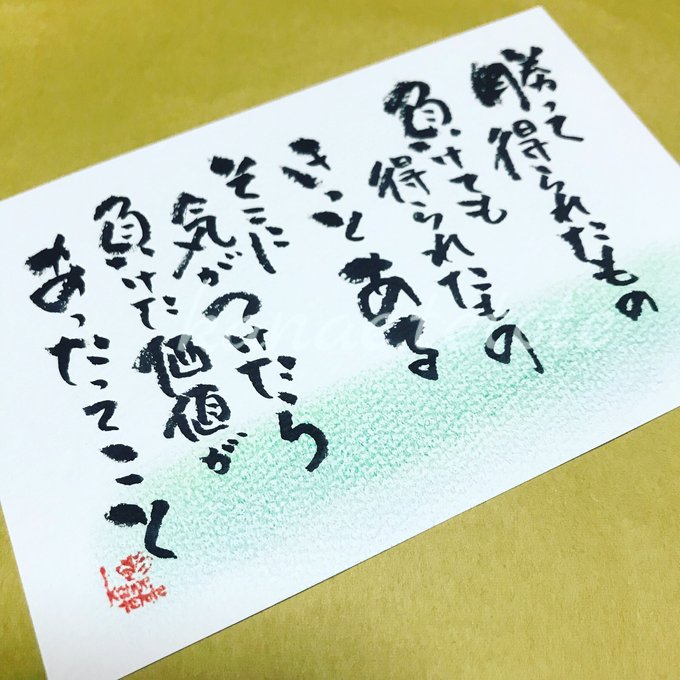 勝って得られたもの
負けても
得られたもの
きっとある
そこに
気がつけたら
負けた価値が
あったってこと